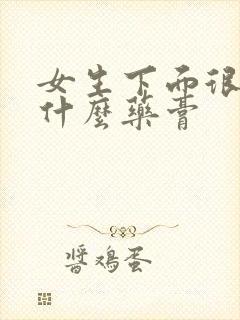 女生下面很
什麼藥膏
醬鸡蛋